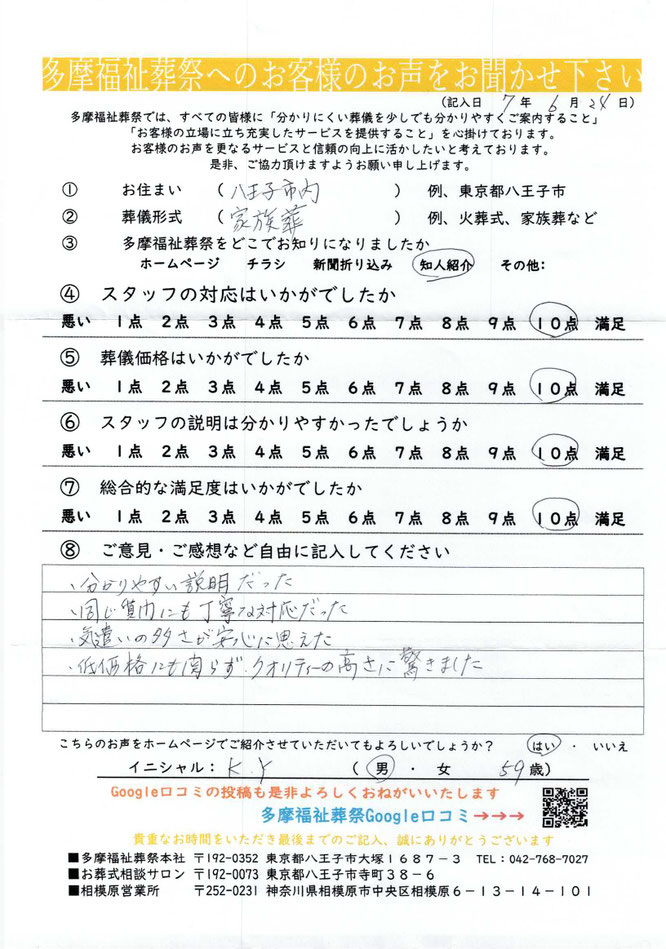 多摩福祉葬祭へのお客様のお声をお聞かせ下さい
(記入日 7 年 6 月 24 日)
多摩福祉葬祭では、すべての皆様に「分かりにくい葬儀を少しでも分かりやすくご案内すること」
「お客様の立場に立ち充実したサービスを提供すること」を心掛けております。
お客様のお声を更なるサービスと信頼の向上に活かしたいと考えております。
是非、ご協力頂けますようお願い申し上げます。
① お住まい (八王子市内) 例、東京都八王子市
② 葬儀形式 (家族葬) 例、火葬式、家族葬など
③ 多摩福祉葬祭をどこでお知りになりましたか
ホームページ チラシ 新聞折り込み 知人紹介 その他:
④ スタッフの対応はいかがでしたか
悪い 1点 2点 3点 4点 5点 6点 7点 8点 9点 10点 満足
⑤ 葬儀価格はいかがでしたか
悪い 1点 2点 3点 4点 5点 6点 7点 8点 9点 10点 満足
⑥ スタッフの説明は分かりやすかったでしょうか
悪い 1点 2点 3点 4点 5点 6点 7点 8点 9点 10点 満足
⑦ 総合的な満足度はいかがでしたか
悪い 1点 2点 3点 4点 5点 6点 7点 8点 9点 10点 満足
⑧ ご意見・ご感想など自由に記入してください
・分かりやすい説明だった
・同じ質問にも丁寧な対応だった
・気遣いの多さが安心に思えた
・低価格にも関らず、クオリティーの高さに驚きました
こちらのお声をホームページでご紹介させていただいてもよろしいでしょうか? はい ・ いいえ
イニシャル: K.Y (男 ・ 女 59歳)
Google口コミの投稿も是非よろしくおねがいいたします
多摩福祉葬祭Google口コミ→→→
貴重なお時間をいただき最後までのご記入、誠にありがとうございます
■多摩福祉葬祭本社 〒192-0352 東京都八王子市大塚1687-3 TEL:042-768-7027
■お葬式相談サロン 〒192-0073 東京都八王子市寺町38-6
■相模原営業所 〒252-0231 神奈川県相模原市中央区相模原6-13-14-101